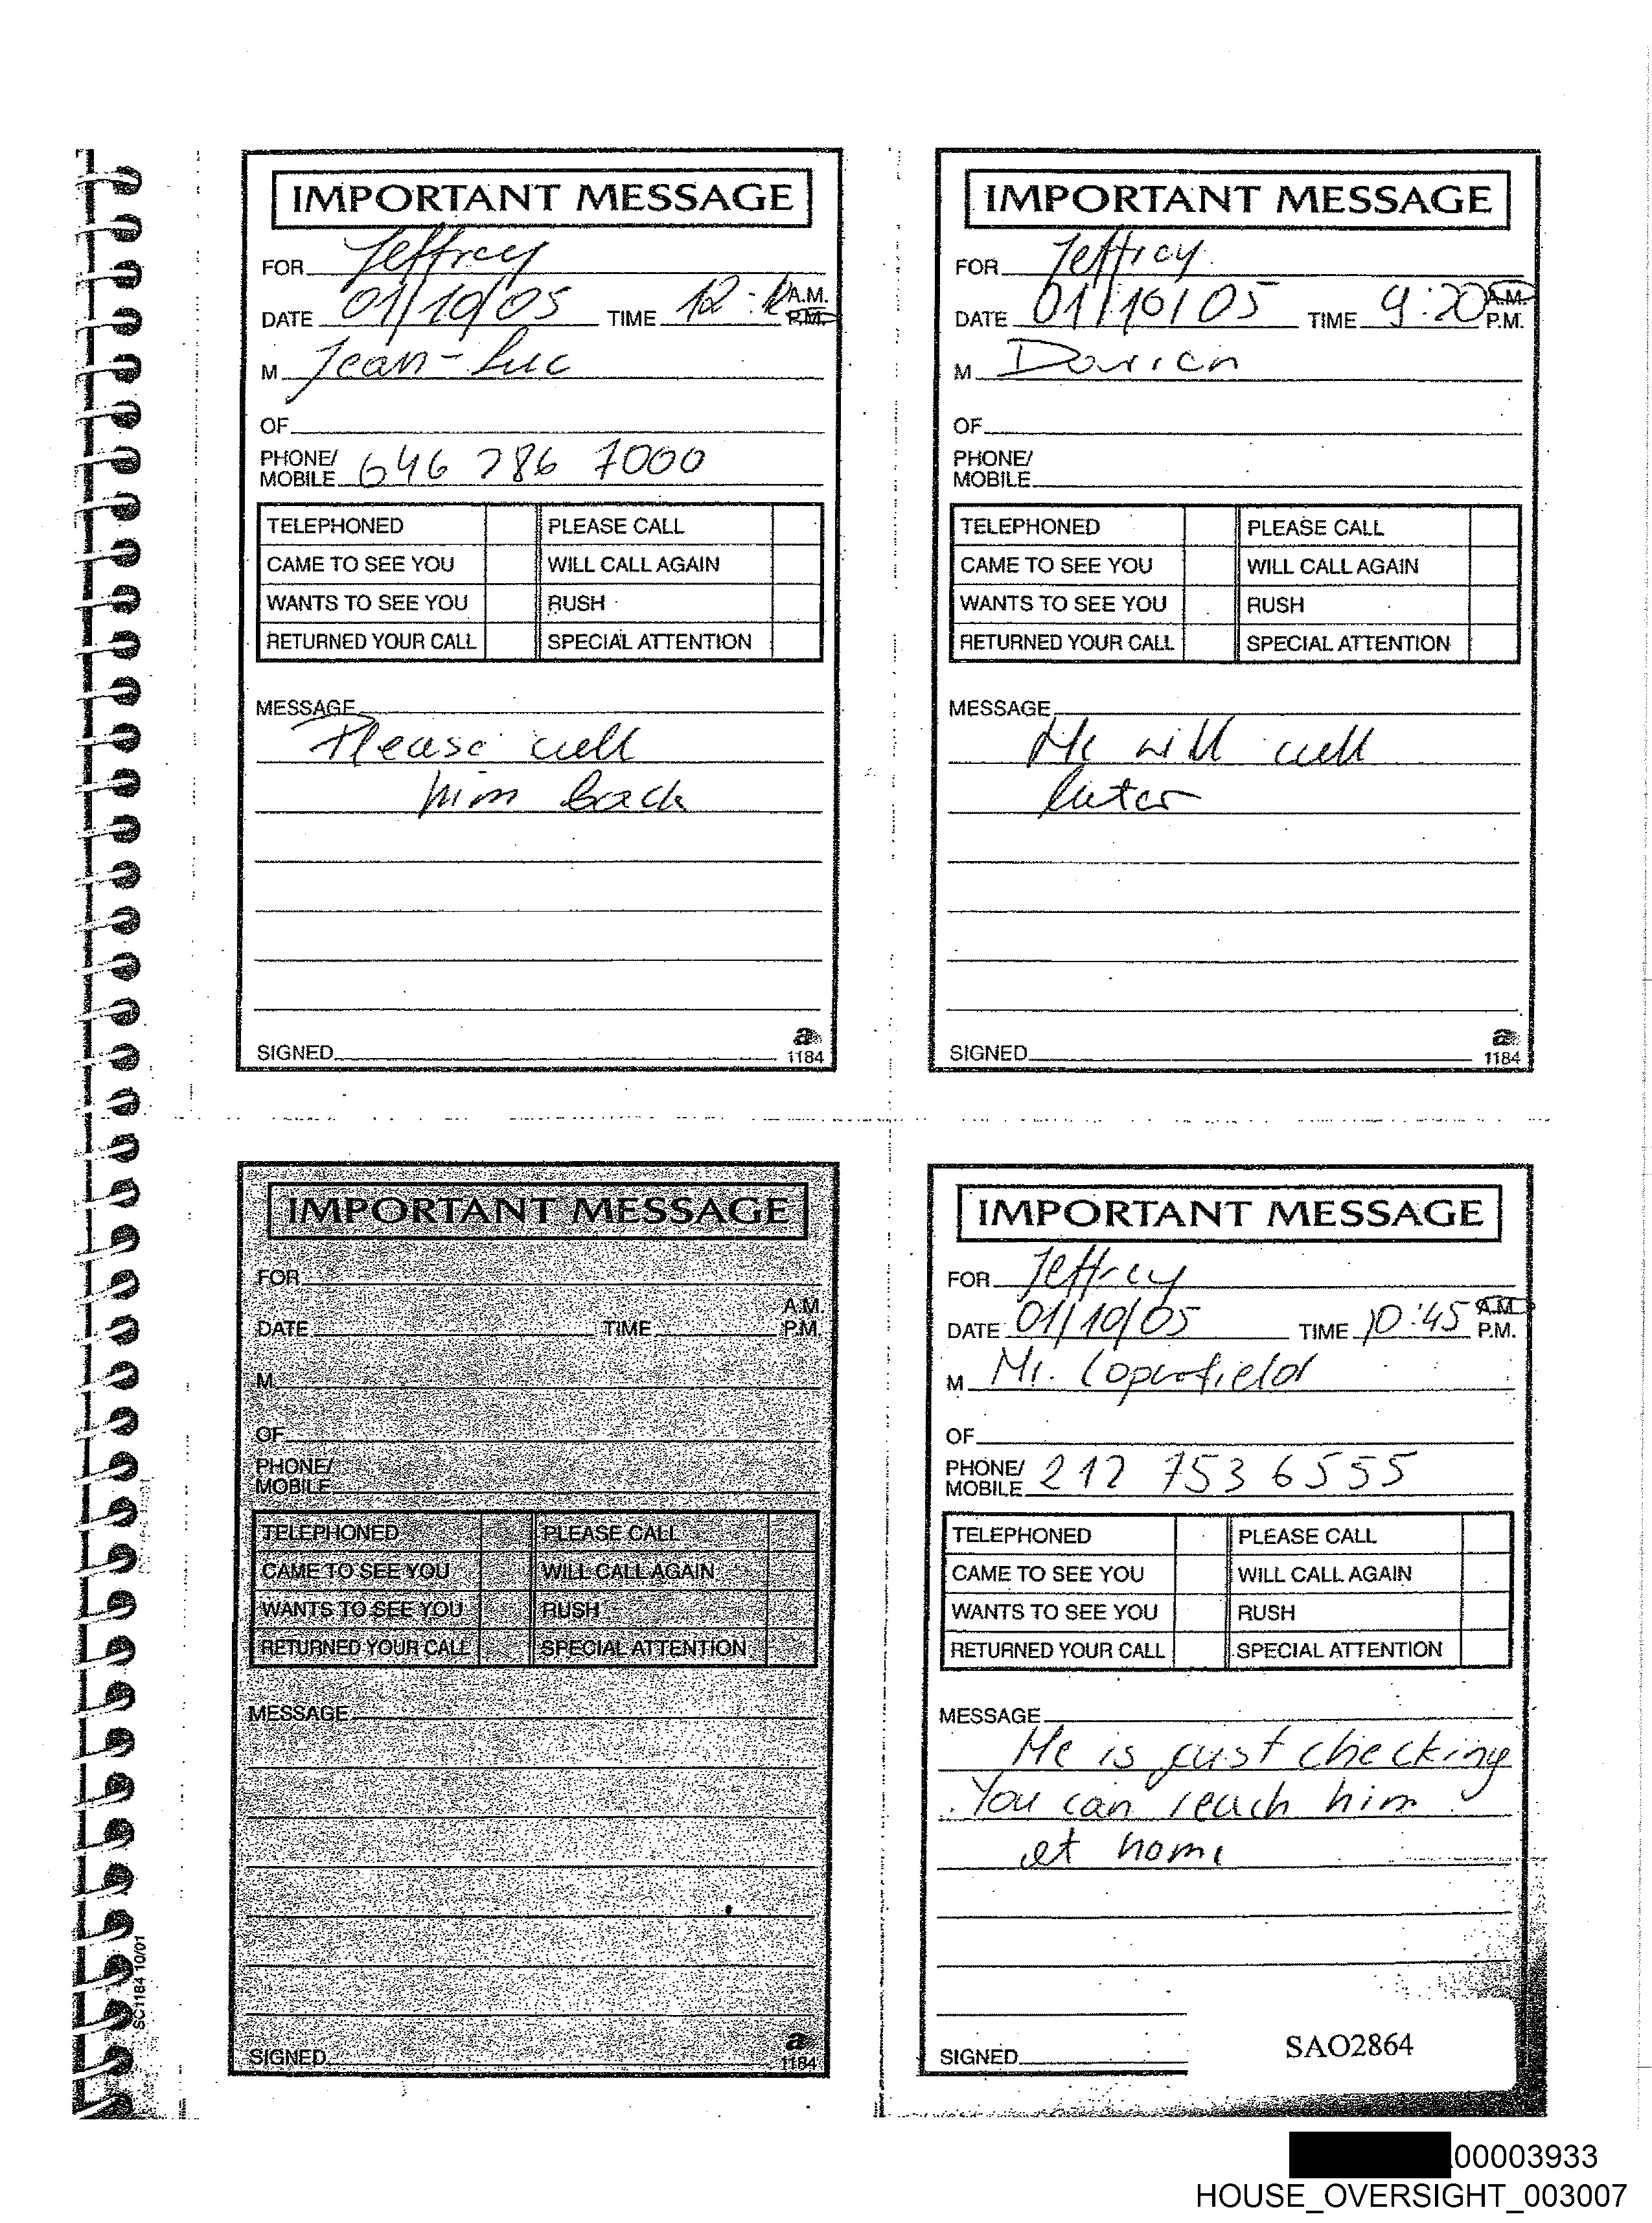 IMPORTANT MESSAGE
FOR Jeffrey
DATE 01/10/05 TIME 12: A.M. P.M.
M Jean-Luc
OF
PHONE/ MOBILE 646 286 7000
TELEPHONED PLEASE CALL
CAME TO SEE YOU WILL CALL AGAIN
WANTS TO SEE YOU RUSH
RETURNED YOUR CALL SPECIAL ATTENTION
MESSAGE
Please call
him back
SIGNED
a
1184
IMPORTANT MESSAGE
FOR Jeffrey
DATE 01/10/05 TIME 9:20 A.M. P.M.
M Darren
OF
PHONE/ MOBILE
TELEPHONED PLEASE CALL
CAME TO SEE YOU WILL CALL AGAIN
WANTS TO SEE YOU RUSH
RETURNED YOUR CALL SPECIAL ATTENTION
MESSAGE
He will call
later
SIGNED
a
1184
IMPORTANT MESSAGE
FOR
DATE TIME A.M. P.M.
M
OF
PHONE/ MOBILE
TELEPHONED PLEASE CALL
CAME TO SEE YOU WILL CALL AGAIN
WANTS TO SEE YOU RUSH
RETURNED YOUR CALL SPECIAL ATTENTION
MESSAGE
SIGNED
a
1184
IMPORTANT MESSAGE
FOR Jeffrey
DATE 01/10/05 TIME 10:45 A.M. P.M.
M Mr. Coperfield
OF
PHONE/ MOBILE 212 753 6555
TELEPHONED PLEASE CALL
CAME TO SEE YOU WILL CALL AGAIN
WANTS TO SEE YOU RUSH
RETURNED YOUR CALL SPECIAL ATTENTION
MESSAGE
He is just checking
You can reach him
at home
SIGNED
SC1184 10/01
SAO2864
00003933
HOUSE_OVERSIGHT_003007